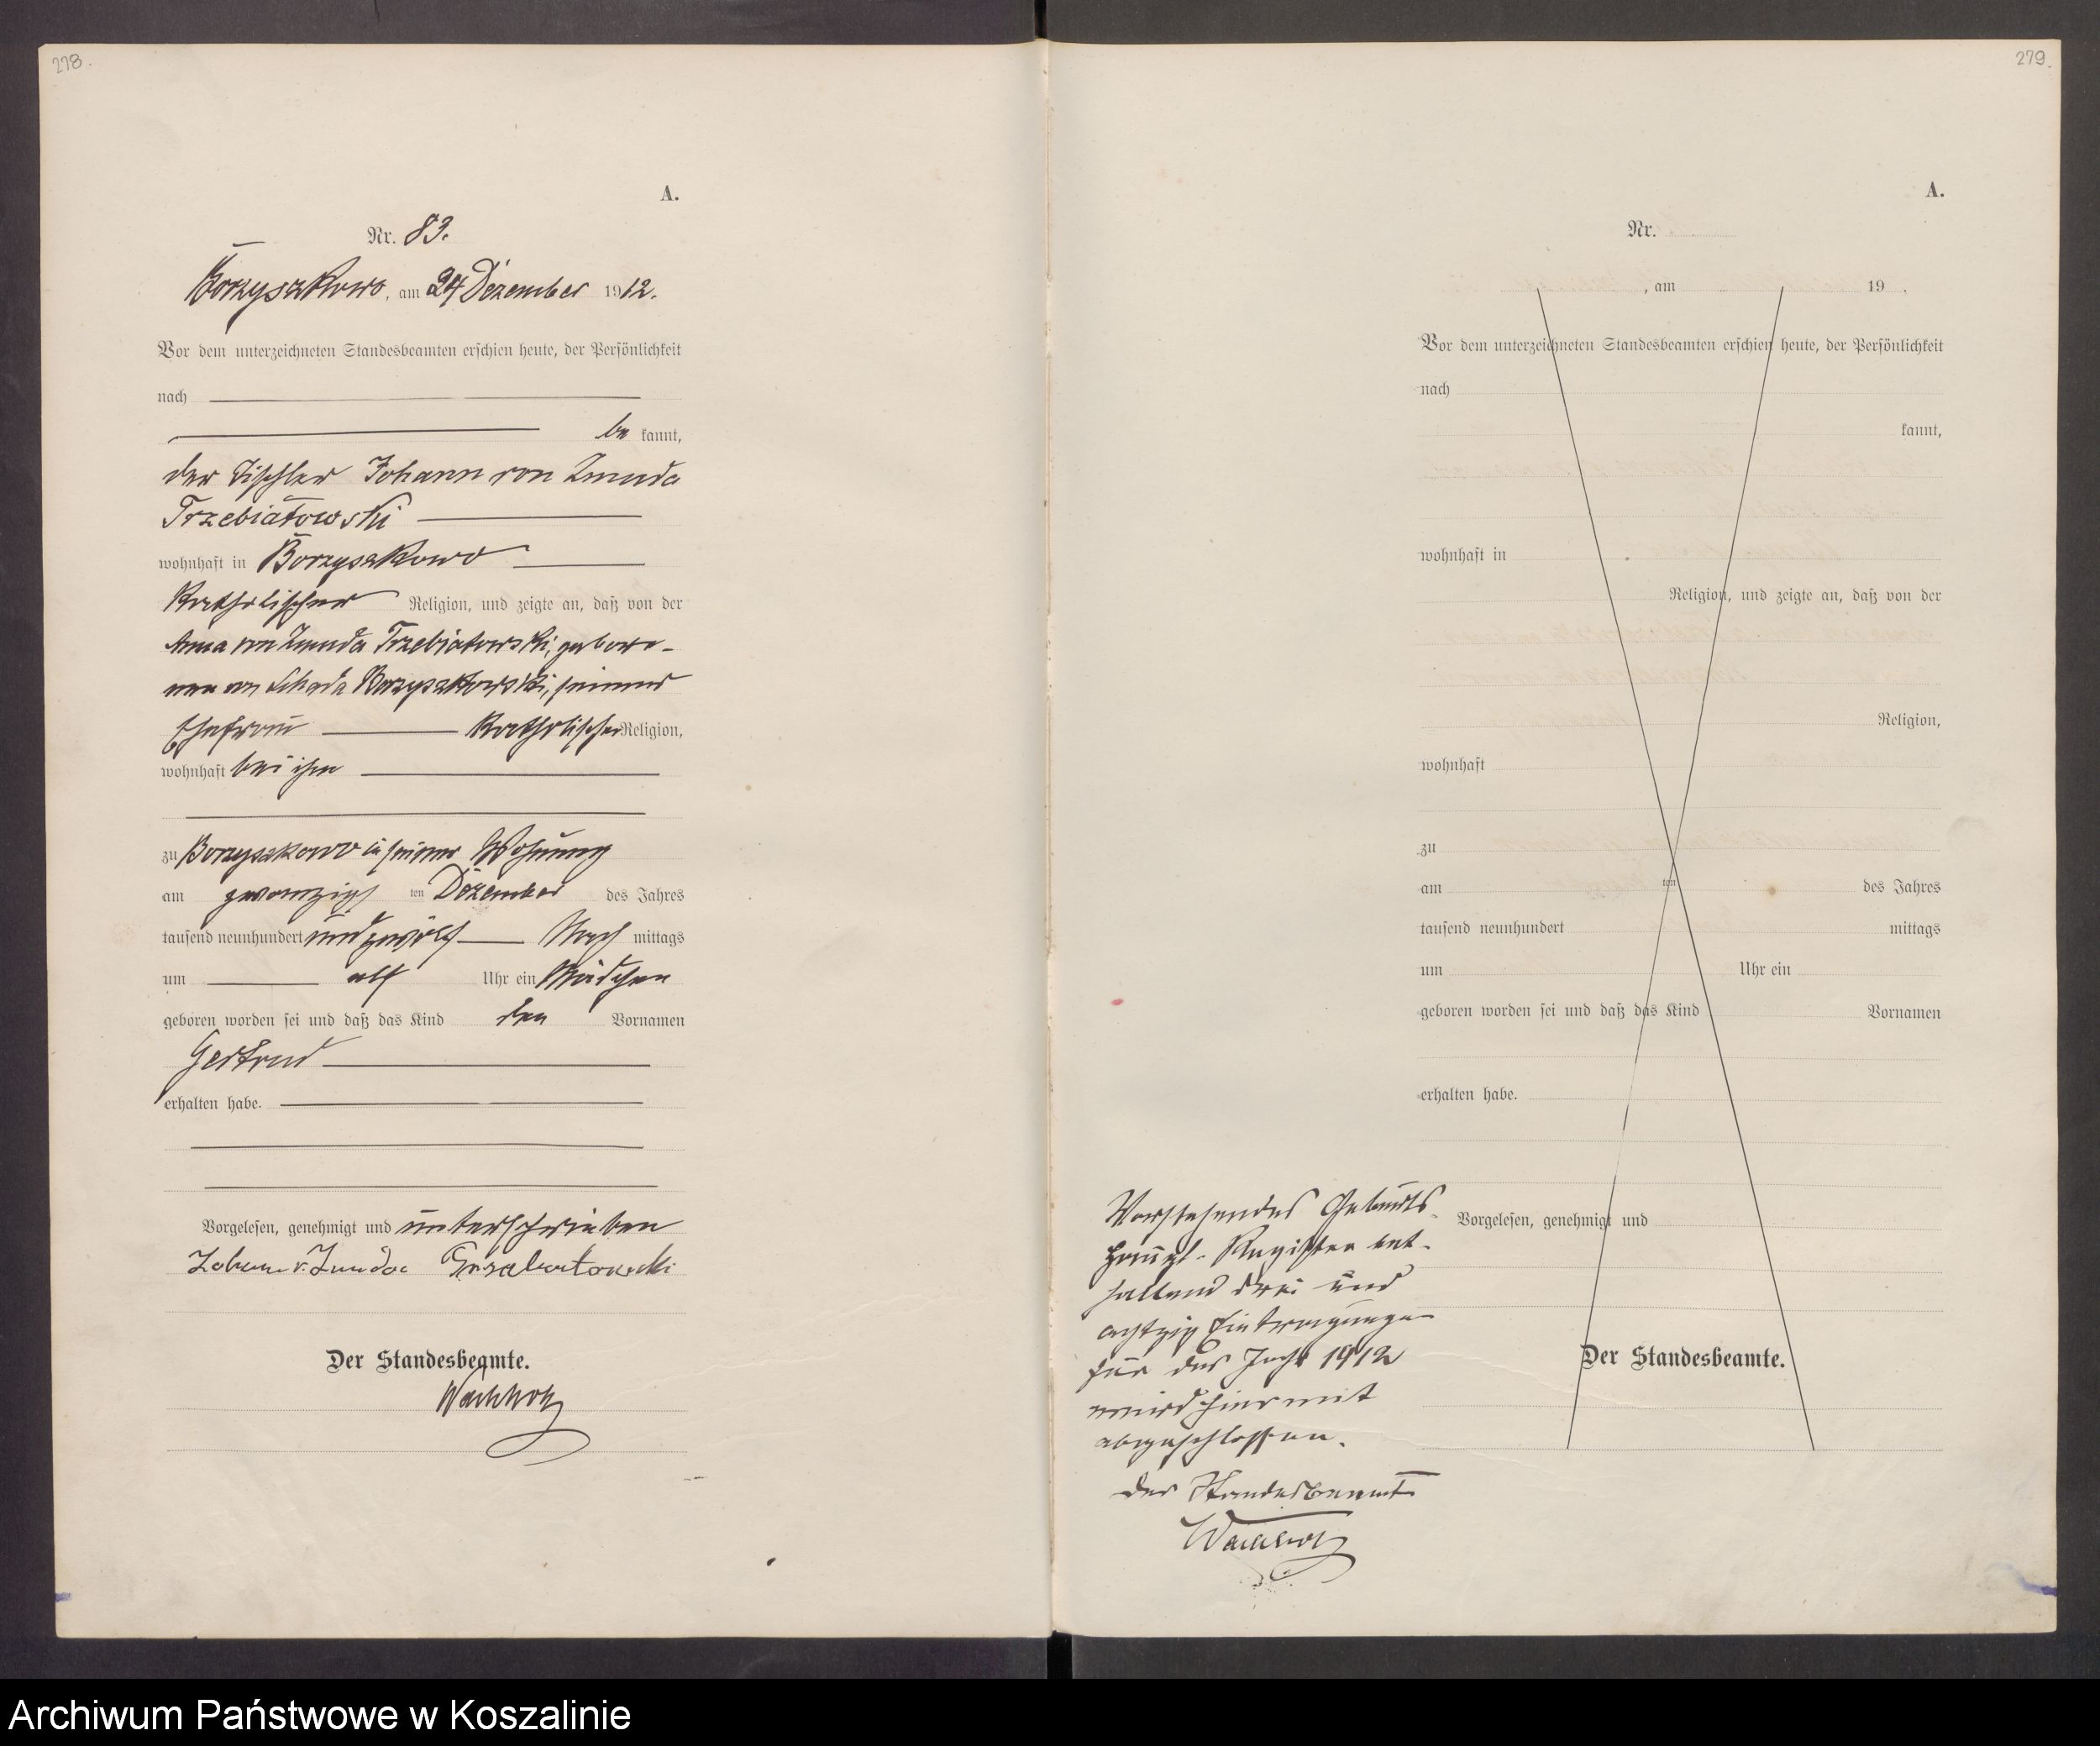 278.
A.
Nr. 83.
Borzyszkowo, am 24 Dezember 1912.
Vor dem unterzeichneten Standesbeamten erschien heute, der Persönlichkeit
nach
be kannt,
der Tischler Johann von Zmuda
Trzebiatowski
wohnhaft in Borzyszkowo
katholischer Religion, und zeigte an, daß von der
Anna von Zmuda Trzebiatowski, gebore-
nen von Schada Borzyszkowski, seiner
Ehefrau katholischer Religion,
wohnhaft bei ihm
zu Borzyszkowo in seiner Wohnung
am zwanzigs ten Dezember des Jahres
tausend neunhundert und zwölf Nach mittags
um elf Uhr ein Mädchen
geboren worden sei und daß das Kind den Vornamen
Gertrud
erhalten habe.
Vorgelesen, genehmigt und unterschrieben
Johann v. Zmuda Trzebiatowski
Der Standesbeamte.
Wachholz
279.
A.
Nr.
, am 19 .
Vor dem unterzeichneten Standesbeamten erschien heute, der Persönlichkeit
nach
kannt,
wohnhaft in
Religion, und zeigte an, daß von der
Religion,
wohnhaft
zu
am ten des Jahres
tausend neunhundert mittags
um Uhr ein
geboren worden sei und daß das Kind Vornamen
erhalten habe.
Vorgelesen, genehmigt und
Der Standesbeamte.
Vorstehendes Geburts-
Haupt-Register ent-
haltend drei und
achtzig Eintragungen
für das Jahr 1912
wird hiermit
abgeschlossen.
Der Standesbeamte
Wachholz
Archiwum Państwowe w Koszalinie